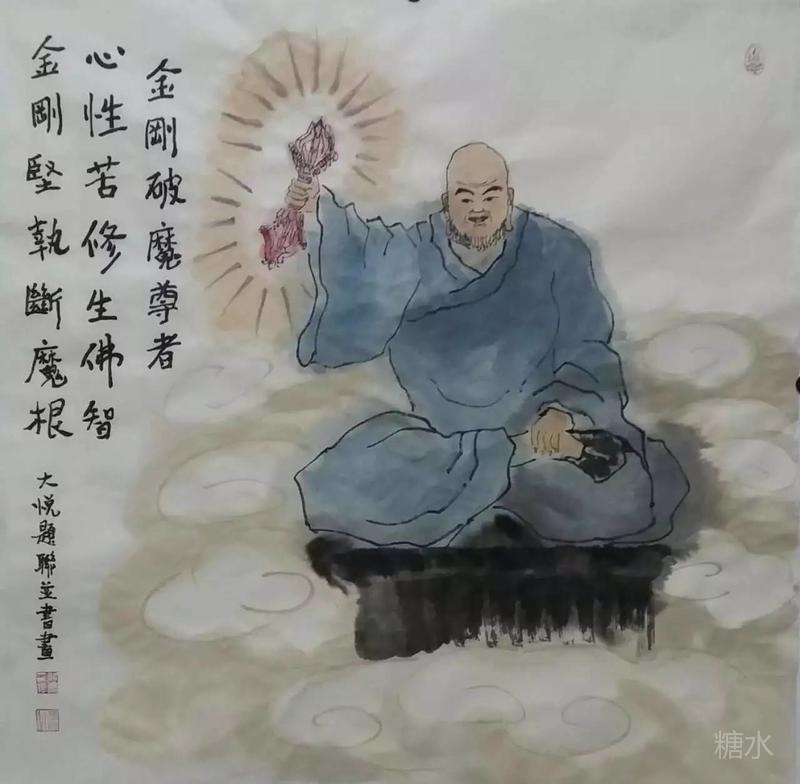 金剛破魔尊者
心性苦修生佛智
金剛堅執斷魔根
大悅題聯並書畫
糖水